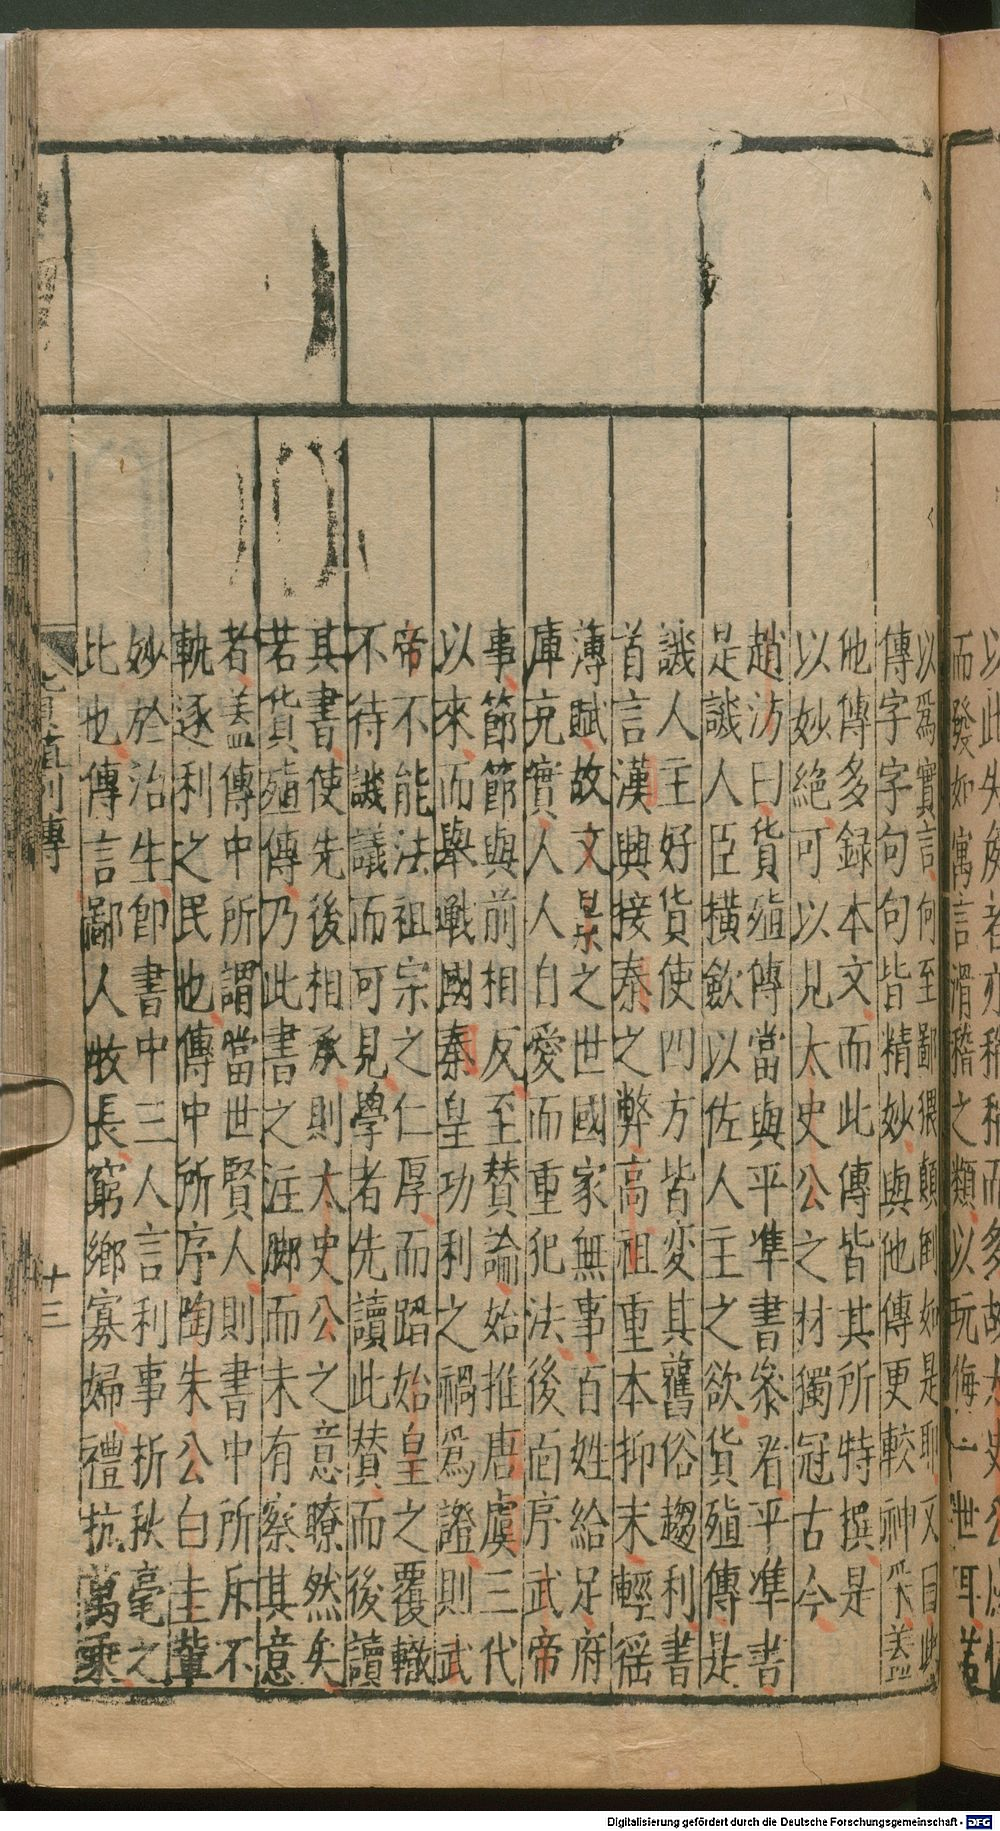 以此失
而發如寓言滑稽之類以玩侮一世耳若
以爲實言何至鄙猥顛倒如是耶又曰此
傳字字句句皆精妙與他傳更較神采蓋
他傳多録本文而此傳皆其所特撰是
以妙絶可以見太史公之材獨冠古今
趙汸曰貨殖傳當與平準書參看平準書
是譏人臣橫歛以佐人主之欲貨殖傳是
譏人主好貨使四方皆変其舊俗趨利書
首言漢興接秦之弊高祖重本抑末輕徭
薄賦故文景之世國家無事百姓給足府
庫充實人人自愛而重犯法後面序武帝
事節節與前相反至贊論始推唐虞三代
以來而舉戰國秦皇功利之禍爲證則武
帝不能法祖宗之仁厚而蹈始皇之覆轍
不待譏議而可見學者先讀此贊而後讀
其書使先後相承則太史公之意瞭然矣
若貨殖傳乃此書之注脚而未有察其意
者蓋傳中所謂當世賢人則書中所斥不
軌逐利之民也傳中所序陶朱公白圭輩
妙於治生即書中三人言利事折秋毫之
比也傳言鄙人牧長窮鄉寡婦禮抗萬乘
貨殖列傳
十三
Digitalisierung gefördert durch die Deutsche Forschungsgemeinschaft - DFG